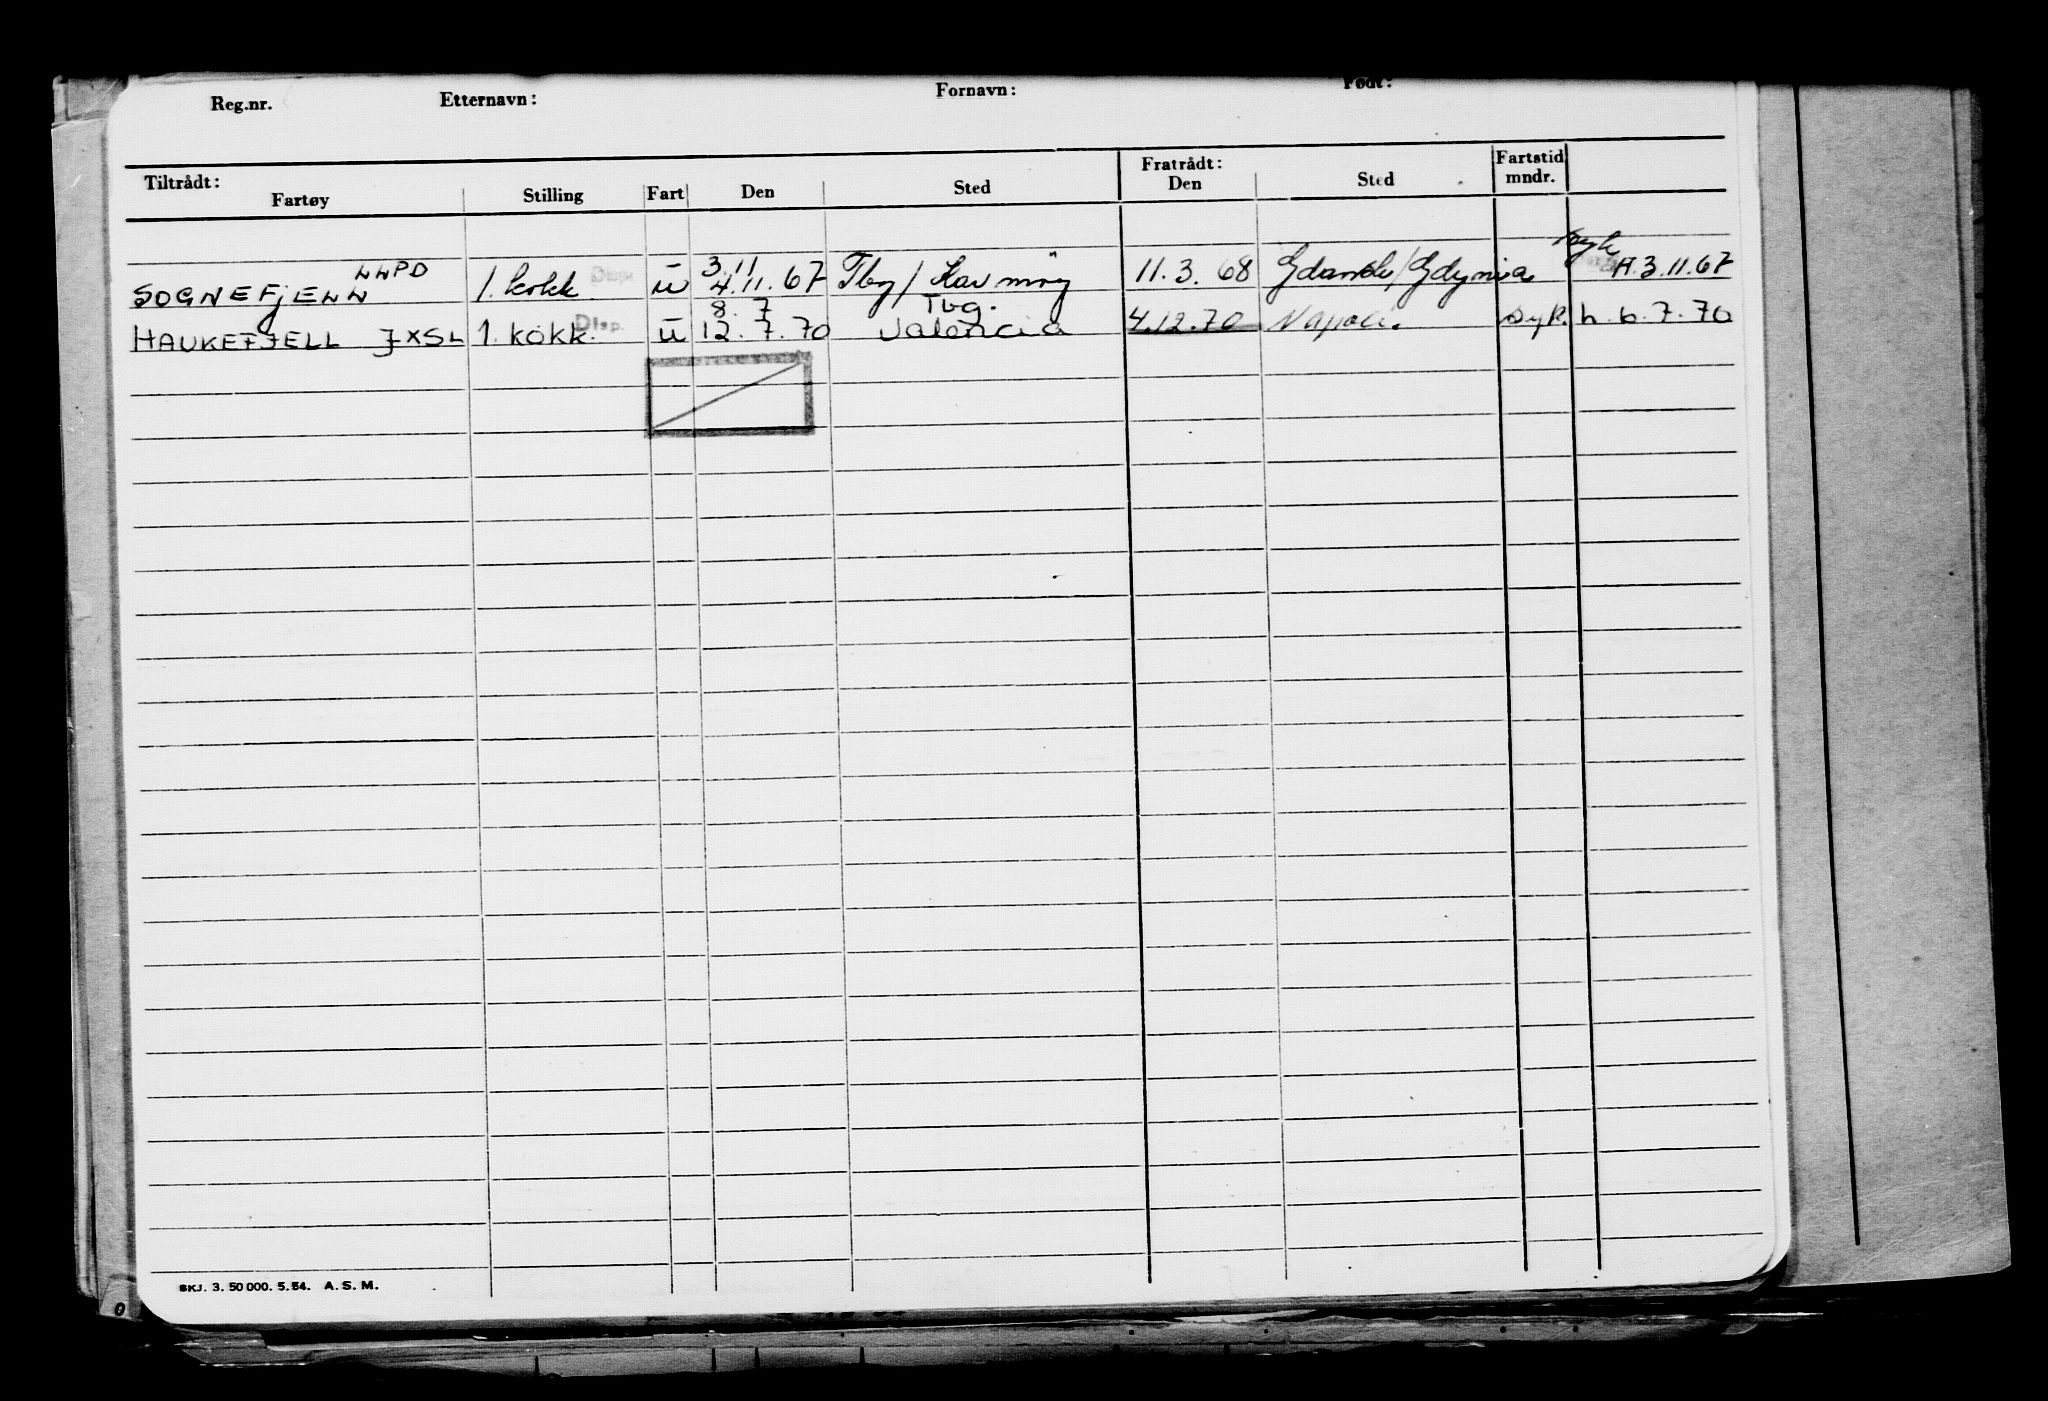 Reg.nr. Etternavn: Fornavn: Født:
Tiltrådt: Fratrådt: Fartstid
Fartøy Stilling Fart Den Sted Den Sted mndr.
LLPD 3.11
SOGNEFJELL 1. kokk Disp. u 4.11.67 Tbg / Havmøy 11.3.68 Gdansk/Gdynia H.3.11.67
8.7 Tbg.
HAUKEFJELL JXSL 1. kokk. Disp. u 12.7.70 Valencia 4.12.70 Napoli. Syk. h. 6.7.70
SKJ. 3. 50 000. 5. 54. A. S. M.
0